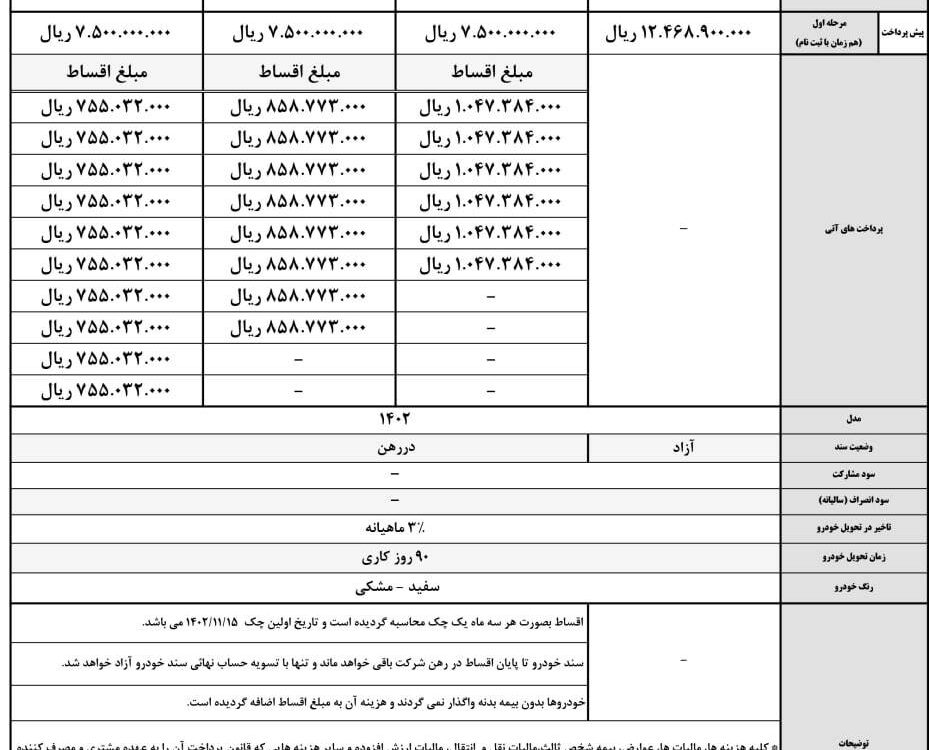 پیش پرداخت
مرحله اول
(هم زمان با ثبت نام)
۱۲.۴۶۸.۹۰۰.۰۰۰ ریال
۷.۵۰۰.۰۰۰.۰۰۰ ریال
۷.۵۰۰.۰۰۰.۰۰۰ ریال
۷.۵۰۰.۰۰۰.۰۰۰ ریال
پرداخت های آتی
–
مبلغ اقساط مبلغ اقساط مبلغ اقساط
۱.۰۴۷.۳۸۴.۰۰۰ ریال ۸۵۸.۷۷۳.۰۰۰ ریال ۷۵۵.۰۳۲.۰۰۰ ریال
۱.۰۴۷.۳۸۴.۰۰۰ ریال ۸۵۸.۷۷۳.۰۰۰ ریال ۷۵۵.۰۳۲.۰۰۰ ریال
۱.۰۴۷.۳۸۴.۰۰۰ ریال ۸۵۸.۷۷۳.۰۰۰ ریال ۷۵۵.۰۳۲.۰۰۰ ریال
۱.۰۴۷.۳۸۴.۰۰۰ ریال ۸۵۸.۷۷۳.۰۰۰ ریال ۷۵۵.۰۳۲.۰۰۰ ریال
۱.۰۴۷.۳۸۴.۰۰۰ ریال ۸۵۸.۷۷۳.۰۰۰ ریال ۷۵۵.۰۳۲.۰۰۰ ریال
۱.۰۴۷.۳۸۴.۰۰۰ ریال ۸۵۸.۷۷۳.۰۰۰ ریال ۷۵۵.۰۳۲.۰۰۰ ریال
– ۸۵۸.۷۷۳.۰۰۰ ریال ۷۵۵.۰۳۲.۰۰۰ ریال
– ۸۵۸.۷۷۳.۰۰۰ ریال ۷۵۵.۰۳۲.۰۰۰ ریال
– – ۷۵۵.۰۳۲.۰۰۰ ریال
– – ۷۵۵.۰۳۲.۰۰۰ ریال
مدل ۱۴۰۲
وضعیت سند آزاد دررهن
سود مشارکت –
سود انصراف (سالیانه) –
تاخیر در تحویل خودرو ۳٪ ماهیانه
زمان تحویل خودرو ۹۰ روز کاری
رنگ خودرو سفید – مشکی
توضیحات
–
اقساط بصورت هر سه ماه یک چک محاسبه گردیده است و تاریخ اولین چک ۱۴۰۲/۱۱/۱۵ می باشد.
سند خودرو تا پایان اقساط در رهن شرکت باقی خواهد ماند و تنها با تسویه حساب نهائی سند خودرو آزاد خواهد شد.
خودروها بدون بیمه بدنه واگذار نمی گردند و هزینه آن به مبلغ اقساط اضافه گردیده است.
* کلیه هزینه ها، مالیات ها، عوارض، بیمه شخص ثالث، مالیات نقل و انتقال، مالیات ارزش افزوده و سایر هزینه هایی که قانون پرداخت آن را به عهده مشتری و مصرف کننده